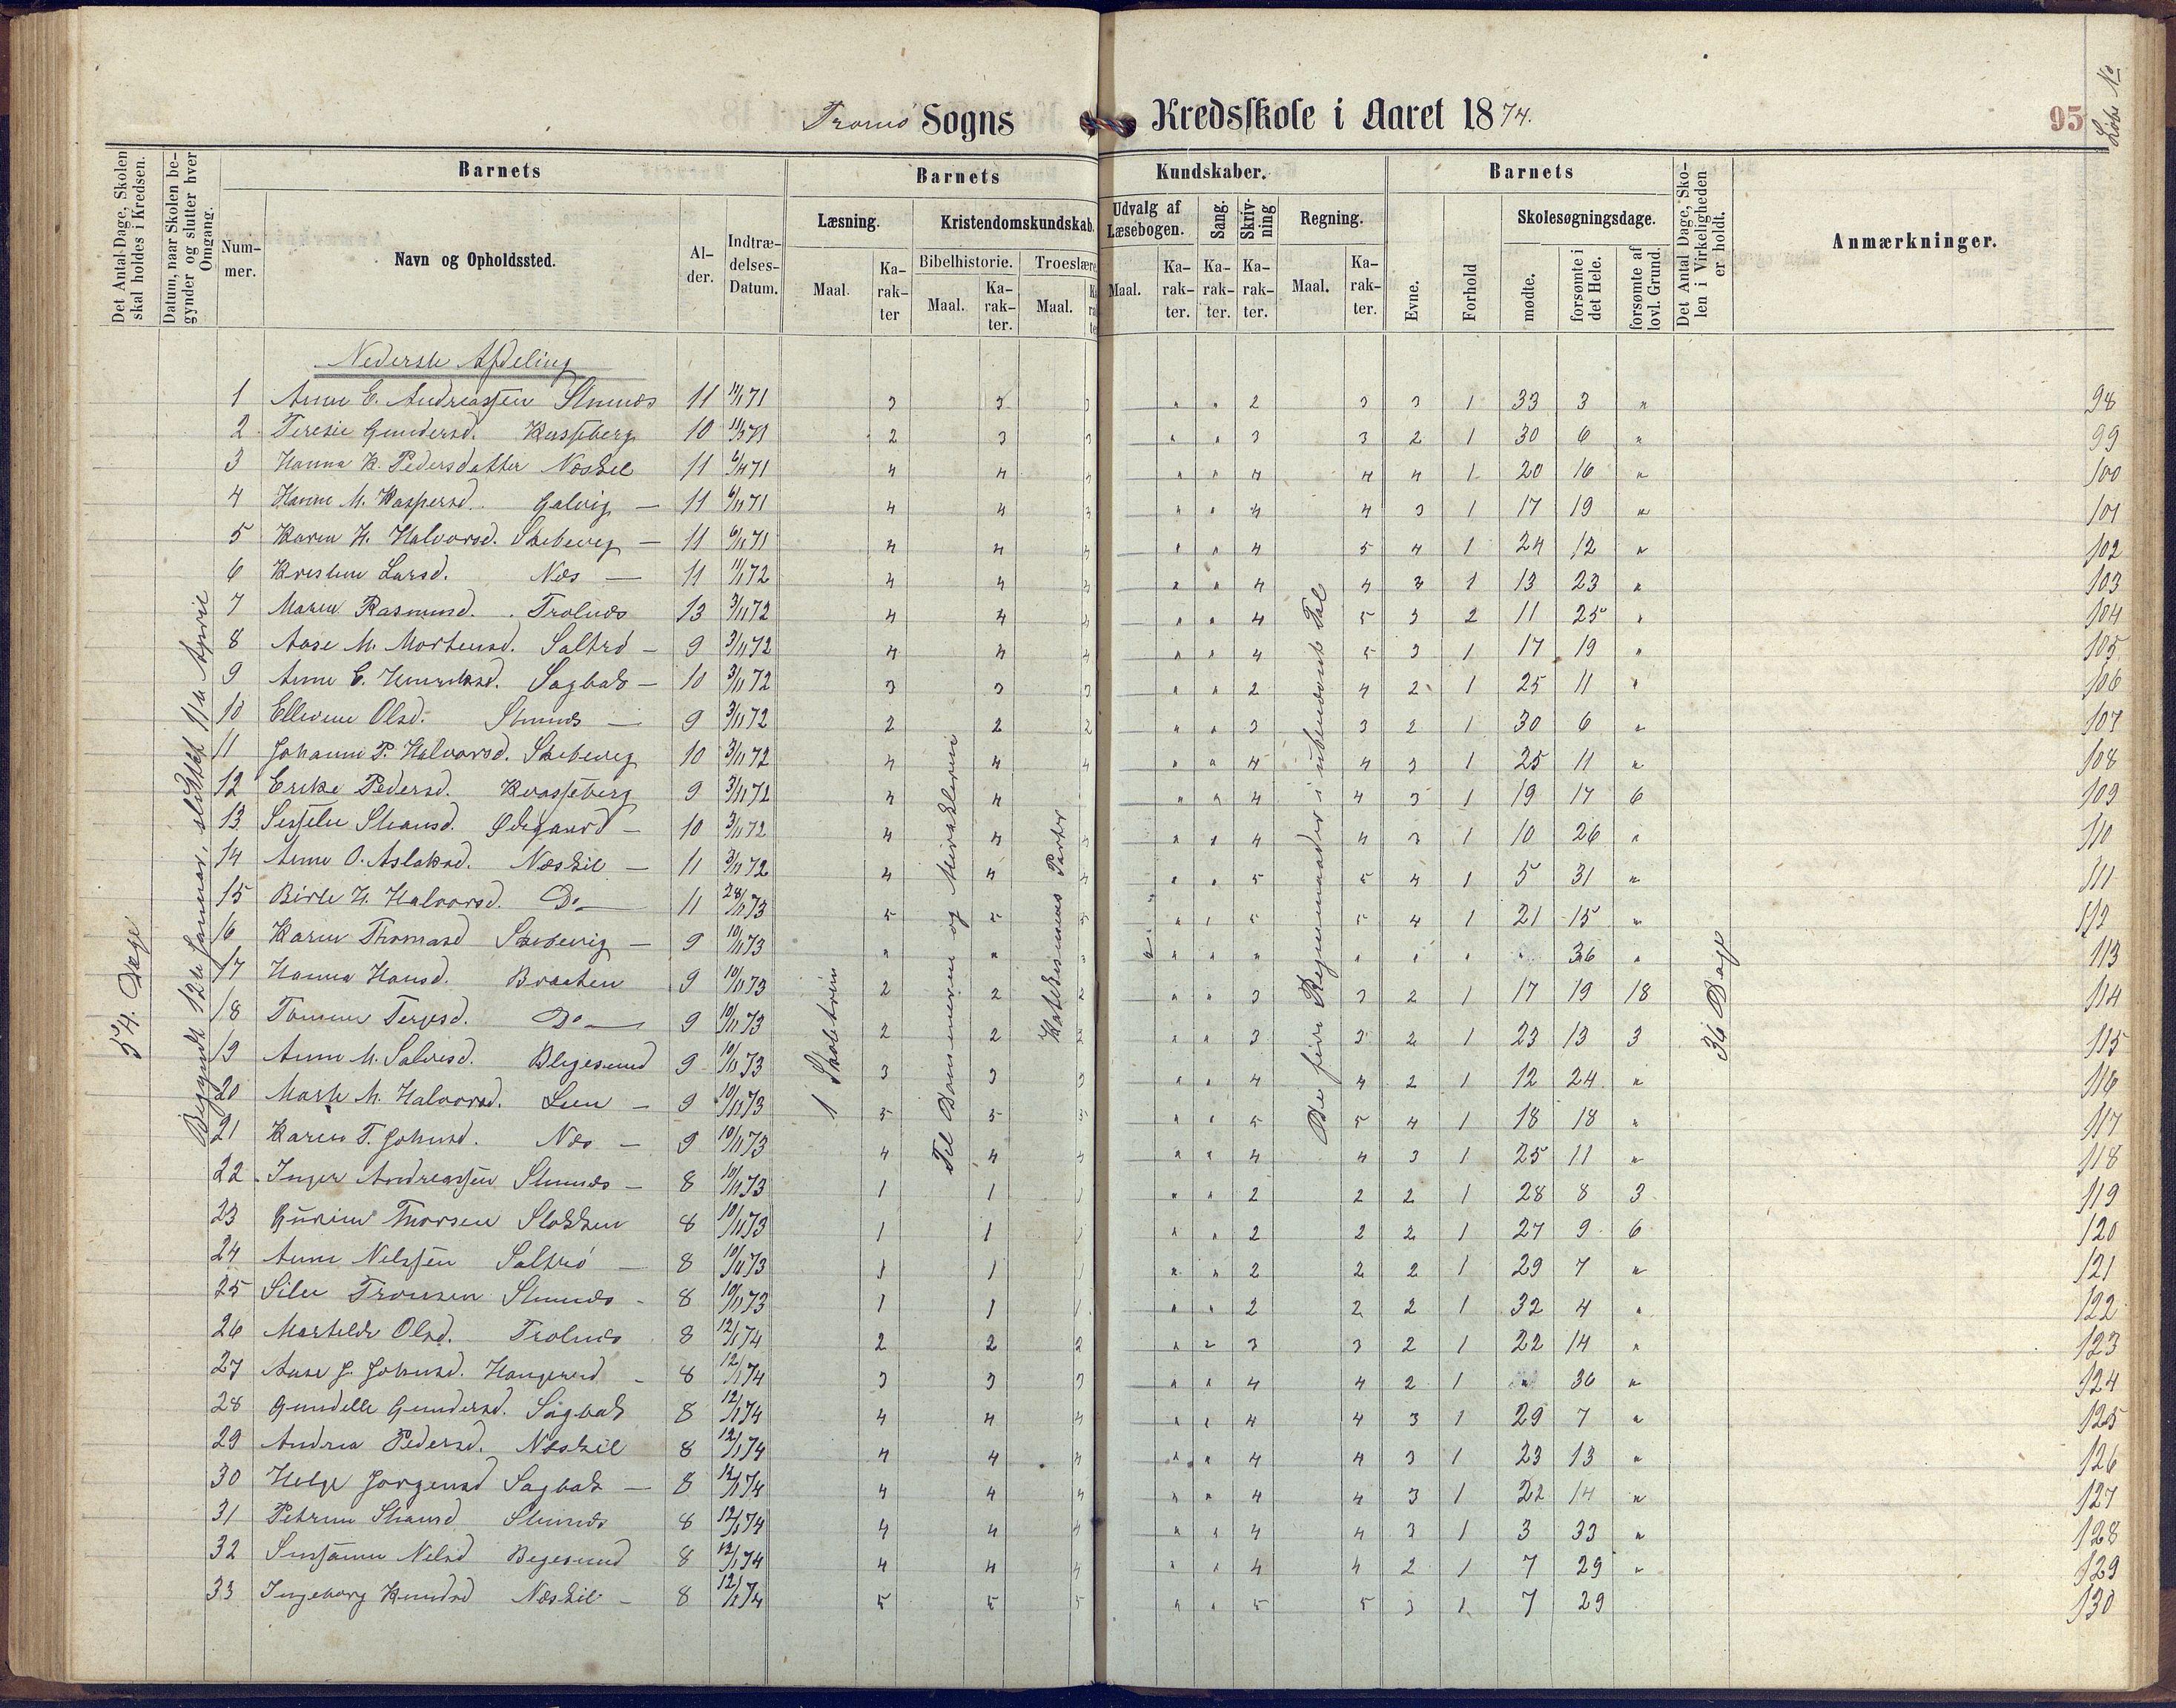 Tromø Sogns Kredsskole i Aaret 1874.
95
Løbe No
Det Antal Dage, Skolen skal holdes i Kredsen.
Datum, naar Skolen begynder og slutter hver Omgang.
Barnets
Barnets Kundskaber.
Barnets
Det Antal Dage, Skolen i Virkeligheden er holdt.
Anmærkninger.
Nummer.
Navn og Opholdssted.
Alder.
Indtrædelses-Datum.
Læsning.
Kristendomskundskab.
Udvalg af Læsebogen.
Sang.
Skrivning
Regning.
Evne.
Forhold
Skolesøgningsdage.
Bibelhistorie.
Troeslære
Maal.
Karakter
Maal.
Karakter.
Maal.
Maal.
Karakter.
Karakter.
Karakter.
Maal.
Karakter.
mødte.
forsømte i det Hele.
forsømte af lovl. Grund.
54. Dage
Begyndt 12te Januar, sluttet 11te April
1 Skoletrin
Til Dommeren og Miraklerne
Katekismens Parter
De fire Regnemaader i ubenævnte Tal
36 Dage
Nederste Afdeling
1 Anne E. Andreassen Stumnæs 11 11/1 71 3 3 3 " " 2 3 3 1 33 3 " 98
2 Teresie Gundersd. Kasseberg 10 2 3 3 " " 3 3 2 1 30 6 " 99
3 Hanna K. Pedersdatter Næskil 11 6/11 71 4 4 4 " " 4 4 4 1 20 16 " 100
4 Hanne M. Kaspersd. Galvig — 11 6/11 71 4 4 3 " " 4 4 3 1 17 19 " 101
5 Karen H. Halvorsd. Skebevig — 11 6/11 71 4 4 4 " " 4 5 4 1 24 12 " 102
6 Kristine Larsd. Næs — 11 11/1 72 4 4 4 " " 4 4 3 1 13 23 " 103
7 Maren Rasmusd. Trolnæs 13 3/11 72 4 4 4 " " 4 5 3 2 11 25 " 104
8 Aase M. Mortensd. Saltrø — 9 3/11 72 4 4 4 " " 4 5 3 1 17 19 " 105
9 Anne E. Henriksd. Sagbak — 10 3/11 72 3 3 3 " " 2 4 2 1 25 11 " 106
10 Ellevine Olsd. Stumnæs — 9 3/11 72 2 2 2 " " 3 3 2 1 30 6 " 107
11 Johanne P. Halvorsd. Skebevig 10 3/11 72 4 4 4 " " 4 4 3 1 25 11 " 108
12 Erike Pedersd. Kvasseberg 9 3/11 72 4 4 " " 4 4 3 1 19 17 6 109
13 Ødegaard — 10 3/11 72 4 4 4 " " 4 4 3 1 10 26 " 110
14 Anne O. Aslaksd. Næskil — 11 3/11 72 4 4 4 " " 5 5 4 1 5 31 " 111
15 Birte H. Halvorsd. Do — 11 28/1 73 5 5 5 " " 5 5 4 1 21 15 " 112
16 Karen Thomasd Skebevig — 9 10/11 73 " " " " " " " " " " 36 " 113
17 Hanna Hansd. Braaten 9 10/11 73 2 2 2 " " 3 3 2 1 17 19 18 114
18 Tomine Terjesd. Do — 9 10/11 73 2 2 2 " " 3 3 2 1 23 13 3 115
19 Anne M. Salvesd. 9 10/11 73 3 3 3 " " 4 4 2 1 12 24 " 116
20 Marte M. Halvorsd. Lien — 9 10/11 73 5 5 5 " " 5 5 4 1 18 18 " 117
21 Karen T. Johnsd. Næs — 9 10/11 73 4 4 4 " " 4 4 3 1 25 11 " 118
22 Inger Andreassen Stumnæs — 8 10/11 73 1 1 1 " " 2 2 2 1 28 8 3 119
23 Gurine Thorsen Stokken 8 10/11 73 1 1 1 " " 2 2 2 1 27 9 6 120
24 Anne Nelssen Saltrø — 8 10/11 73 1 1 1 " " 2 2 2 1 29 7 " 121
25 Stumnæs - 8 10/11 73 1 1 1 " " 2 2 2 1 32 4 " 122
26 Martilde Olsd. Trolnæs 8 12/1 74 2 2 2 " " 3 3 2 1 22 14 " 123
27 Aase J. Johnsd. - 8 12/1 74 3 3 3 " " 4 4 2 1 " 36 " 124
28 Gundelle Gundersd. Sagbak 8 12/1 74 4 4 4 " " 4 4 3 1 29 7 " 125
29 Andrea Pedersd. Næskil 8 12/1 74 4 4 4 " " 4 4 3 1 23 13 " 126
30 Helge Jørgensd Sagbak — 8 12/1 74 4 4 4 " " 4 4 3 1 22 14 " 127
31 Petrine Stumnæs 8 12/1 74 4 4 4 " " 4 4 3 1 3 33 " 128
32 Sussanne Nelsd 8 12/1 74 4 4 4 " " 4 4 2 1 7 29 " 129
33 Ingeborg Knudsd Næskil - 8 12/1 74 5 5 5 " " 5 5 3 1 7 29 130